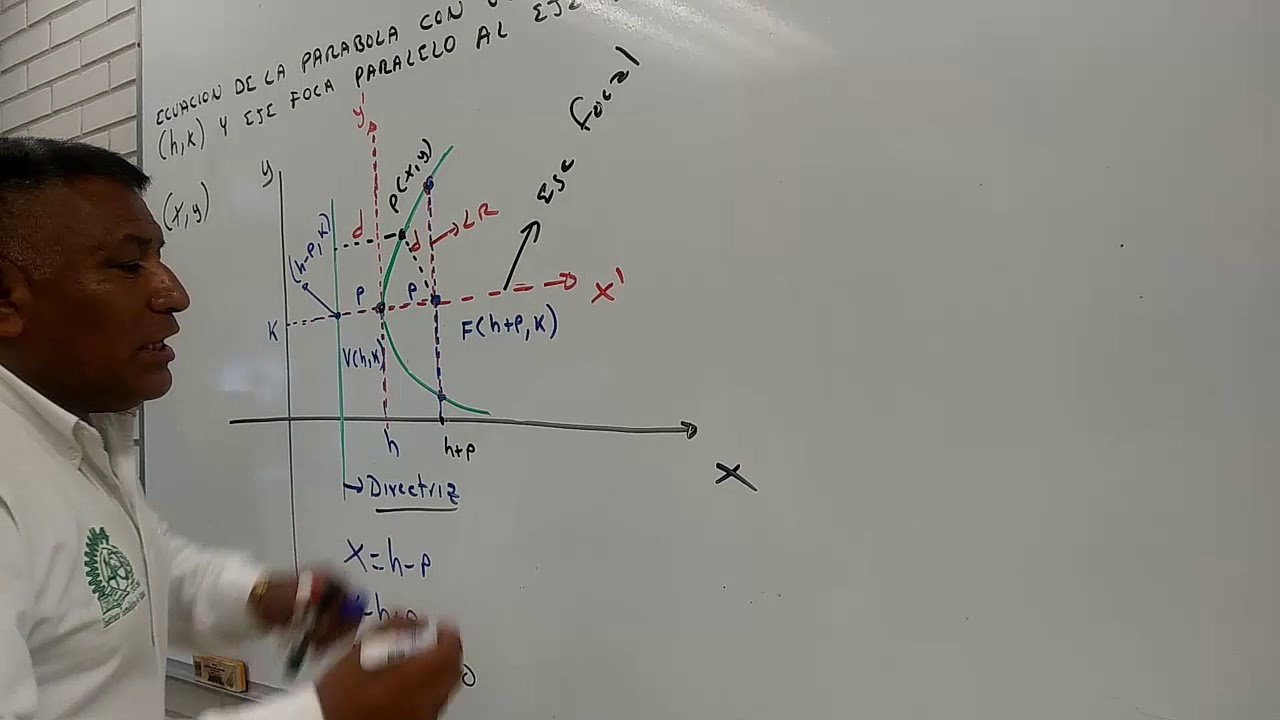 ECUACION DE LA PARABOLA CON
(h,k) Y EJE FOCA PARALELO AL EJE
(x,y)
y
y'
P(x,y)
Eje focal
d
d
LR
(h-p,k)
P
P
x'
K
V(h,k)
F(h+p,k)
h
h+p
Directriz
X
x=h-p